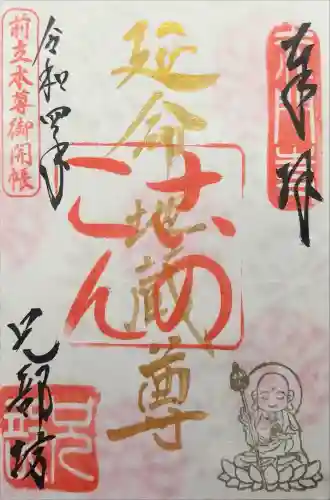 奉拝
延命地蔵尊
さいのこん
令和四年
前立本尊御開帳
兄部坊